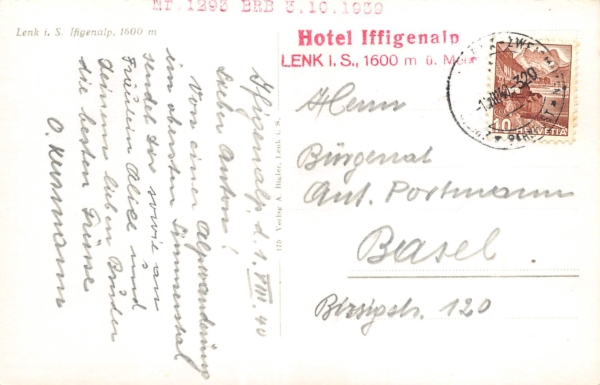 Nr. 1293 BRB 3.10.1939
Lenk i. S. Iffigenalp, 1600 m
Hotel Iffigenalp
LENK i. S., 1600 m ü. Meer
HELVETIA
10
Iffigenalp, d. 1. VIII. 40
Lieber Anton!
Von einer Alpwanderung
im obersten Simmental
sendet Dir sowie an
Fräulein Alice und
deinem lieben Bruder
die besten Grüsse
O. Kurmann
Verlag A. Bigler, Lenk i. S.
Herrn
Bürgerrat
Ant. Portmann
Basel.
Birsigstr. 120